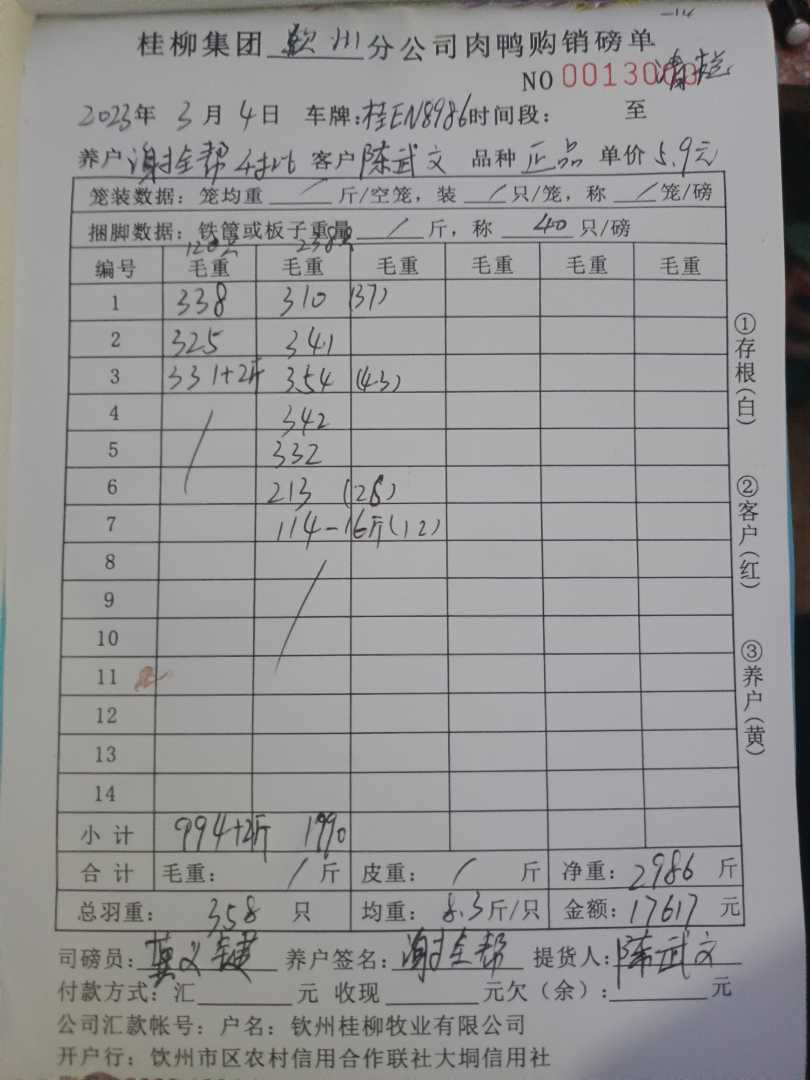 桂柳集团 钦州 分公司肉鸭购销磅单
NO 0013000 清栏
2023年 3月 4日 车牌:桂EN8986 时间段: 至
养户 谢全帮 客户 陈武文 品种 正品 单价 5.9元
笼装数据: 笼均重 / 斤/空笼, 装 / 只/笼, 称 / 笼/磅
捆脚数据: 铁筐或板子重量 / 斤, 称 40 只/磅
120只 238只
编号 毛重 毛重 毛重 毛重 毛重 毛重
1 338 310 (37)
2 325 341
3 331+2斤 354 (43)
4 / 342
5 332
6 213 (28)
7 114-16斤(12)
8 /
9
10
11
12
13
14
小计 994+2斤 1990
合计 毛重: / 斤 皮重: / 斤 净重: 2986 斤
总羽重: 358 只 均重: 8.3斤/只 金额: 17617 元
司磅员: 莫义键 养户签名: 谢全帮 提货人: 陈武文
付款方式: 汇 元 收现 元欠(余): 元
公司汇款帐号: 户名: 钦州桂柳牧业有限公司
开户行: 饮州市区农村信用合作联社大垌信用社
①存根(白)
②客户(红)
③养户(黄)